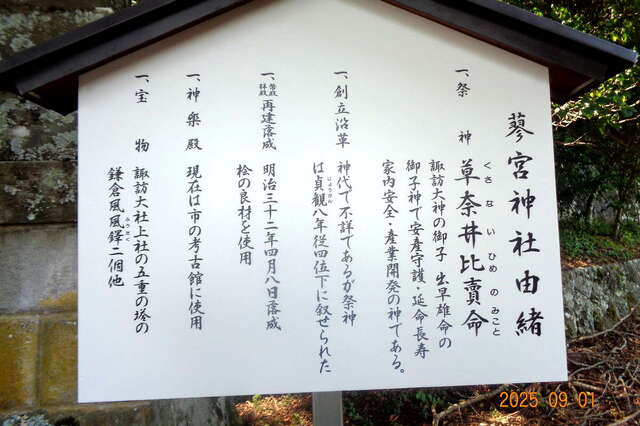 蓼宮神社由緒
一、祭神 草奈井比賣命
くさないひめのみこと
諏訪大神の御子 出早雄命の
御子神で安産守護・延命長寿
家内安全・産業開発の神である。
一、創立沿革 神代で不詳であるが祭神
は貞観八年従四位下に叙せられた
一、再建落成 明治三十二年四月八日落成
桧の良材を使用
一、神楽殿 現在は市の考古館に使用
一、宝物 諏訪大社上社の五重の塔の
鎌倉風風鐸二個他
ふうたく
2025 09 01